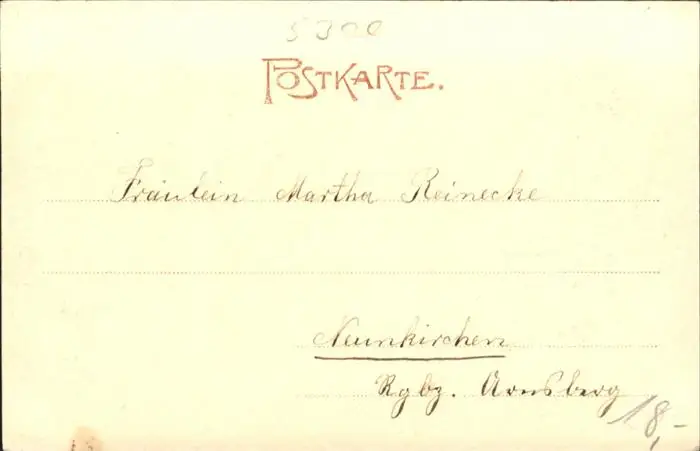 5300
POSTKARTE.
Fräulein Martha Reinecke
Neunkirchen
Rgbz. Arnsberg
18,-